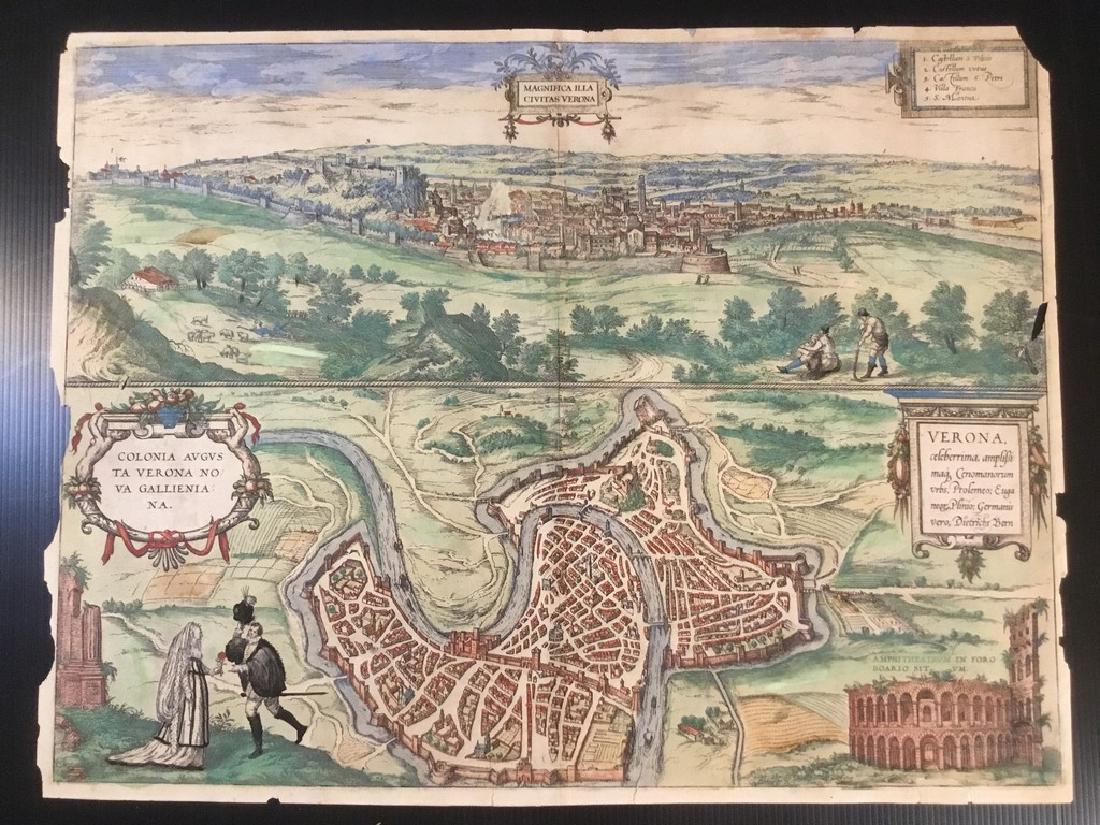 MAGNIFICA ILLA
CIVITAS VERONA
1. Castellum S. Felicis
2. Castellum vetus
3. Castellum S. Petri
4. Villa Franca
5. S. Martino
COLONIA AVGVS
TA VERONA NO
VA GALLIENIA
NA.
VERONA,
celeberrima, amplissi
maq. Cenomanorum
vrbs, Ptolemeo; Euga
neor. Plinio; Germanis
vero, Dietrichs Bern
AMPHITHEATRVM IN FORO
BOARIO SIT VM.